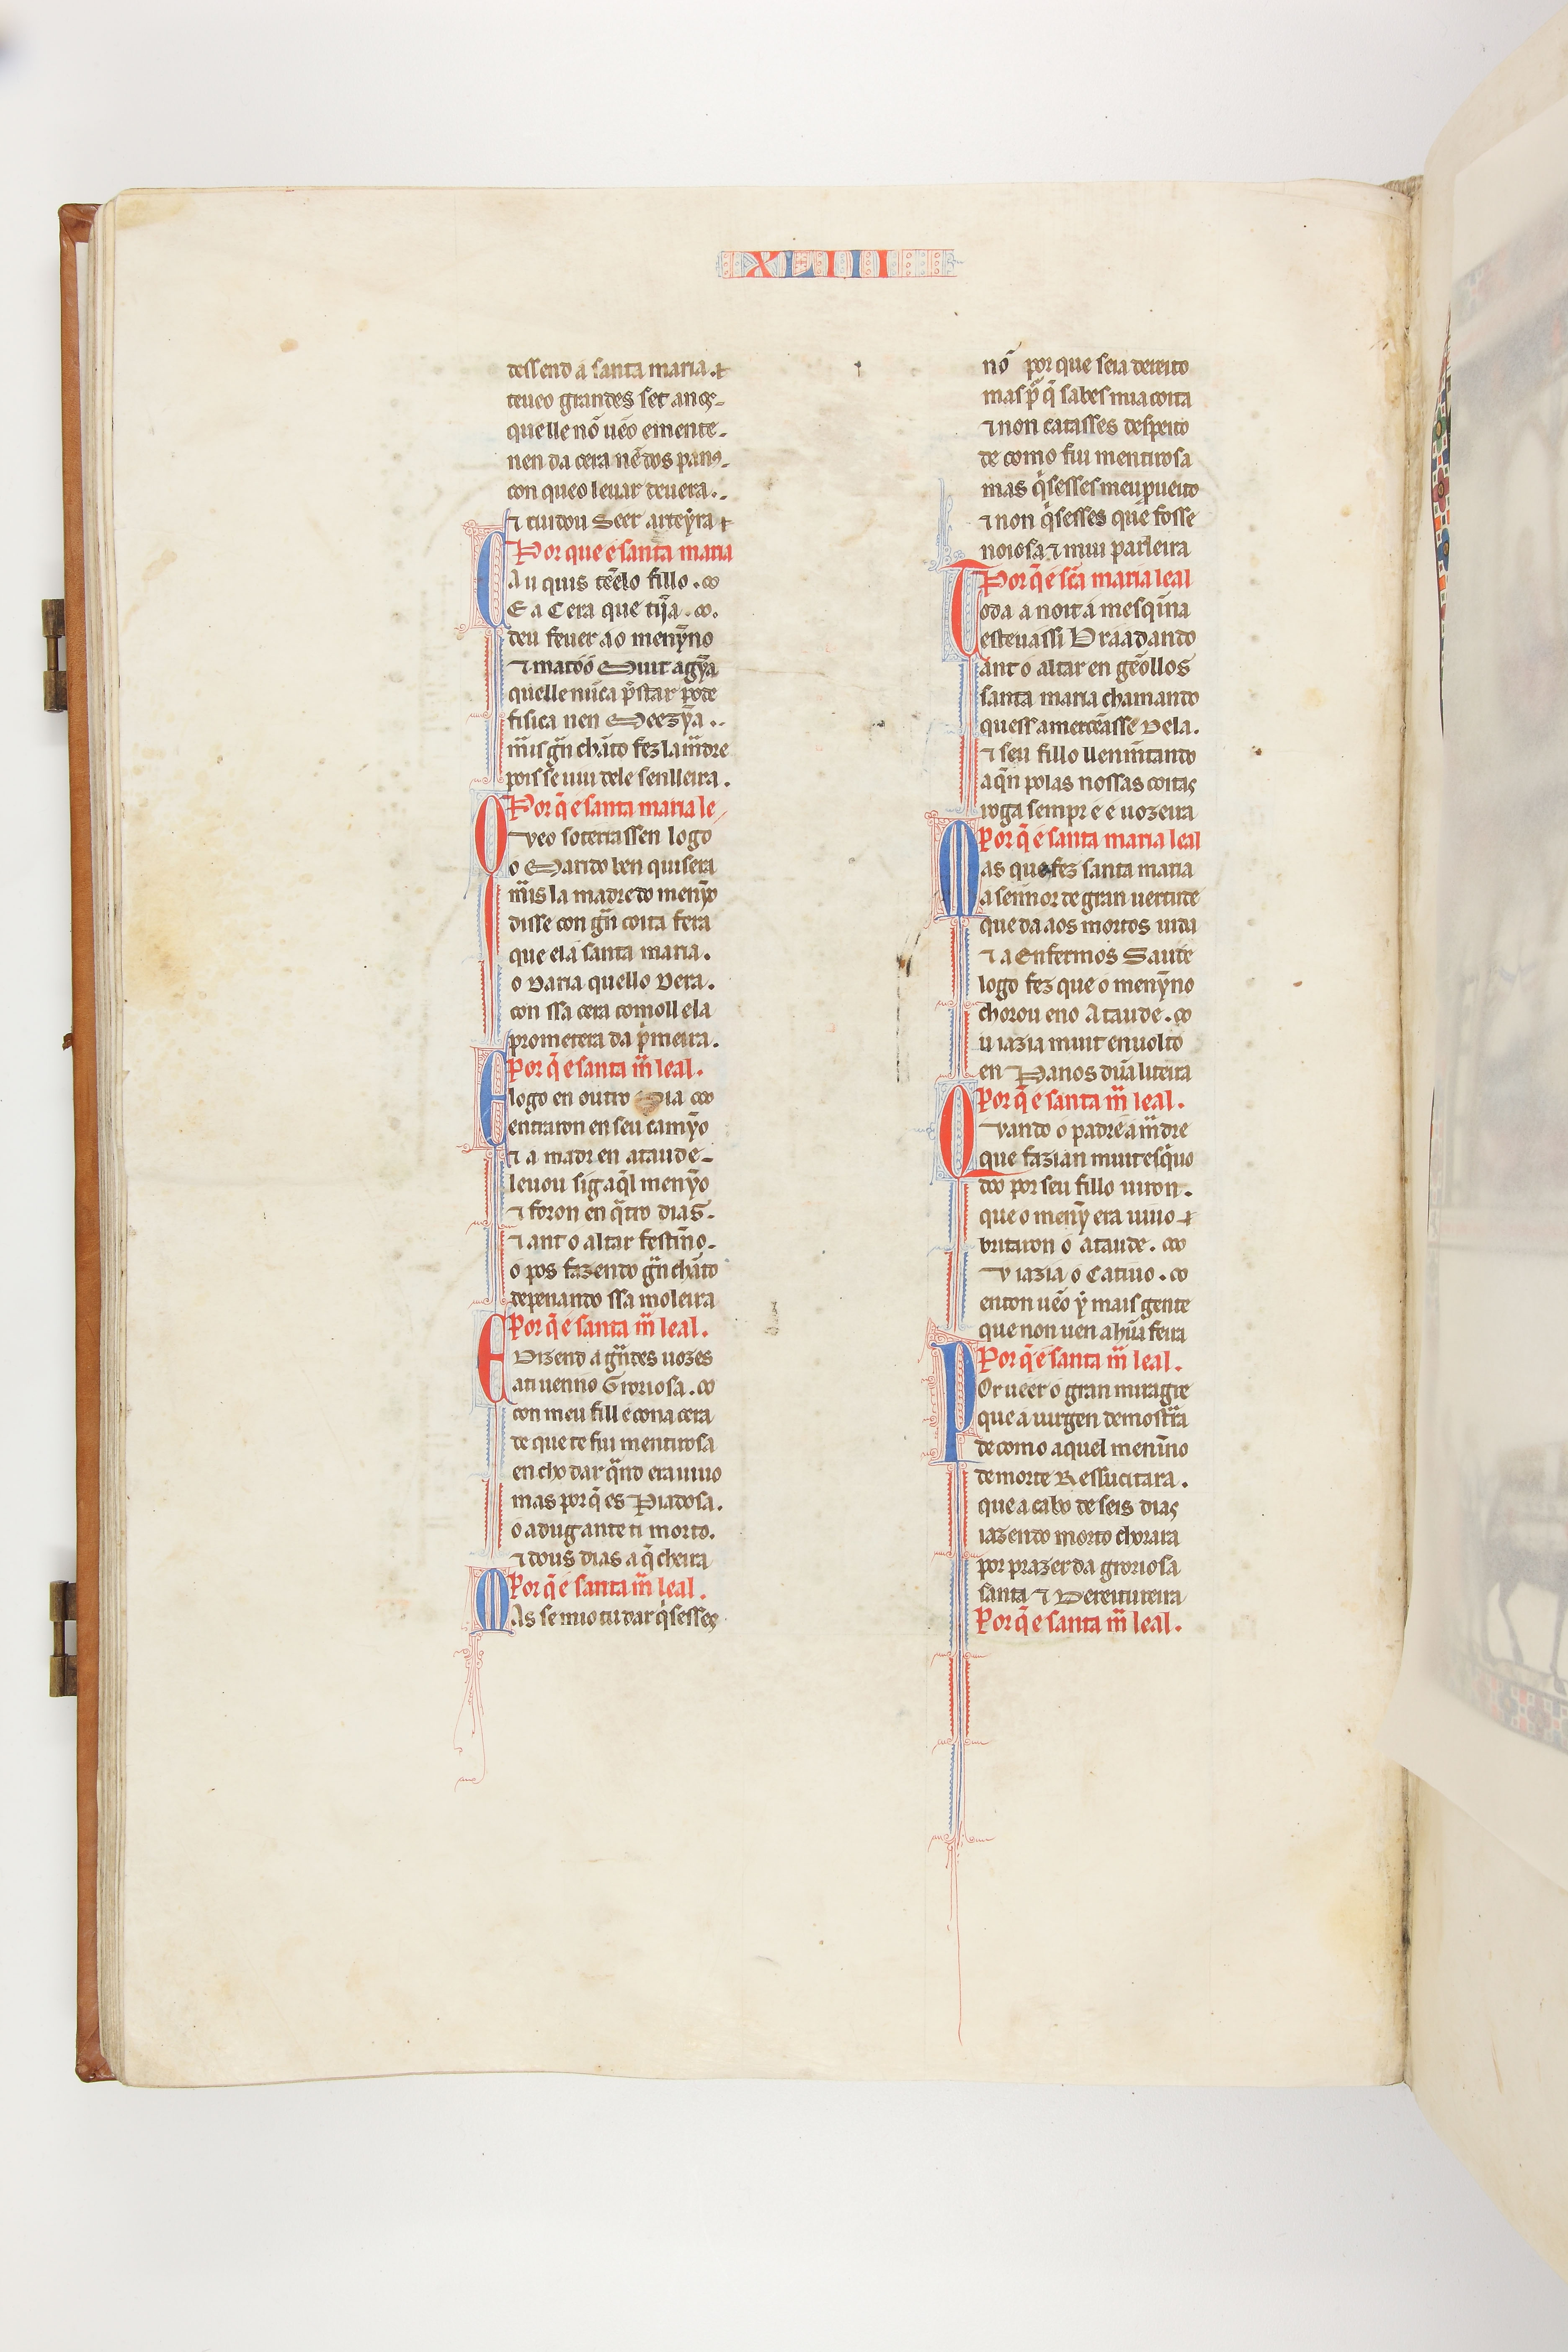 XLIII
dessend á santa maria.
teueo grandes set anos.
quelle nō uēo emente.
nen da cera nē dos panos.
con queo leuar deuera..
⁊ cuidou Seer arteyra
Por que é santa maria
Cau quis tēelo fillo.
E a Cera que tiȷ̃a.
deu feuer ao menỹno
⁊ matóó Muit agỹa
quelle nūca p̃star pode
fisica nen Meezỹa..
m̃is gñ chāto fez la m̃dre
pois se uiu dele senlleira.
Por q̃ é santa maria le
Oveo soterrassen logo
o Marido ben quisera
m̃is la madre do menỹo
disse con gñ coita fera
que ela santa maria.
o Daria quello Dera.
con ssa cera comoll ela
prometera da p̃meira.
Por q̃ é santa m̃ leal.
E logo en outro Dia
entraron en seu camỹo
⁊ a madr en ataude
leuou sig aq̃l menỹo
⁊ foron en q̃tro dias.
⁊ ant o altar festīno.
o pos fazendo gñ chāto
depenando ssa moleira
Por q̃ é santa m̃ leal.
E Dizend a gñdes uozes
ati uenno Groriosa.
con meu fill e cona cera
de que te fui mentirosa
en cho dar q̃nd era uiuo
mas por q̃ es Piadosa.
o adug ante ti morto.
⁊ dous dias a q̃ cheira
Por q̃ é santa m̃ leal.
MAs se mio tu dar q̃sesses
nō por que seia dereito
mas p̃ q̃ sabes mia coita
⁊ non catasses despeito
de como fui mentirosa
mas q̃sesses meu pueito
⁊ non q̃sesses que fosse
noiosa ⁊ mui parleira
Por q̃ é sc̃a maria leal
Toda a noit a mesq̃na
esteu assi Braadando
ant o altar en gēollos
santa maria chamando
quess amercēasse Dela.
⁊ seu fillo llem̃entando
a q̃n polas nossas coitas
roga sempr e é uozeira
Por q̃ é santa maria leal
Mas que fez santa maria
a sennor de gran uertude
que da aos mortos uida
⁊ a Enfermos Saude
logo fez que o menỹno
chorou eno Ataude.
u iazia muit enuolto
en Panos dūa liteira
Por q̃ é santa m̃ leal.
Qvando o padr e a m̃dre
que fazian muit esq̃uo
doo por seu fillo uiron.
que o menỹ era uiuo
britaron o ataude.
v iazia o Catiuo.
enton uēo ỹ mais gente
que non uen a hūa feira
Por q̃ é santa m̃ leal.
POr ueer o gran miragre
que a uirgen demostr̃a
de como aquel menīno
de morte Ressucitara.
que a cabo de seis dias
iazendo morto chorara
por prazer da groriosa
santa ⁊ Dereitureira
Por q̃ é santa m̃ leal.